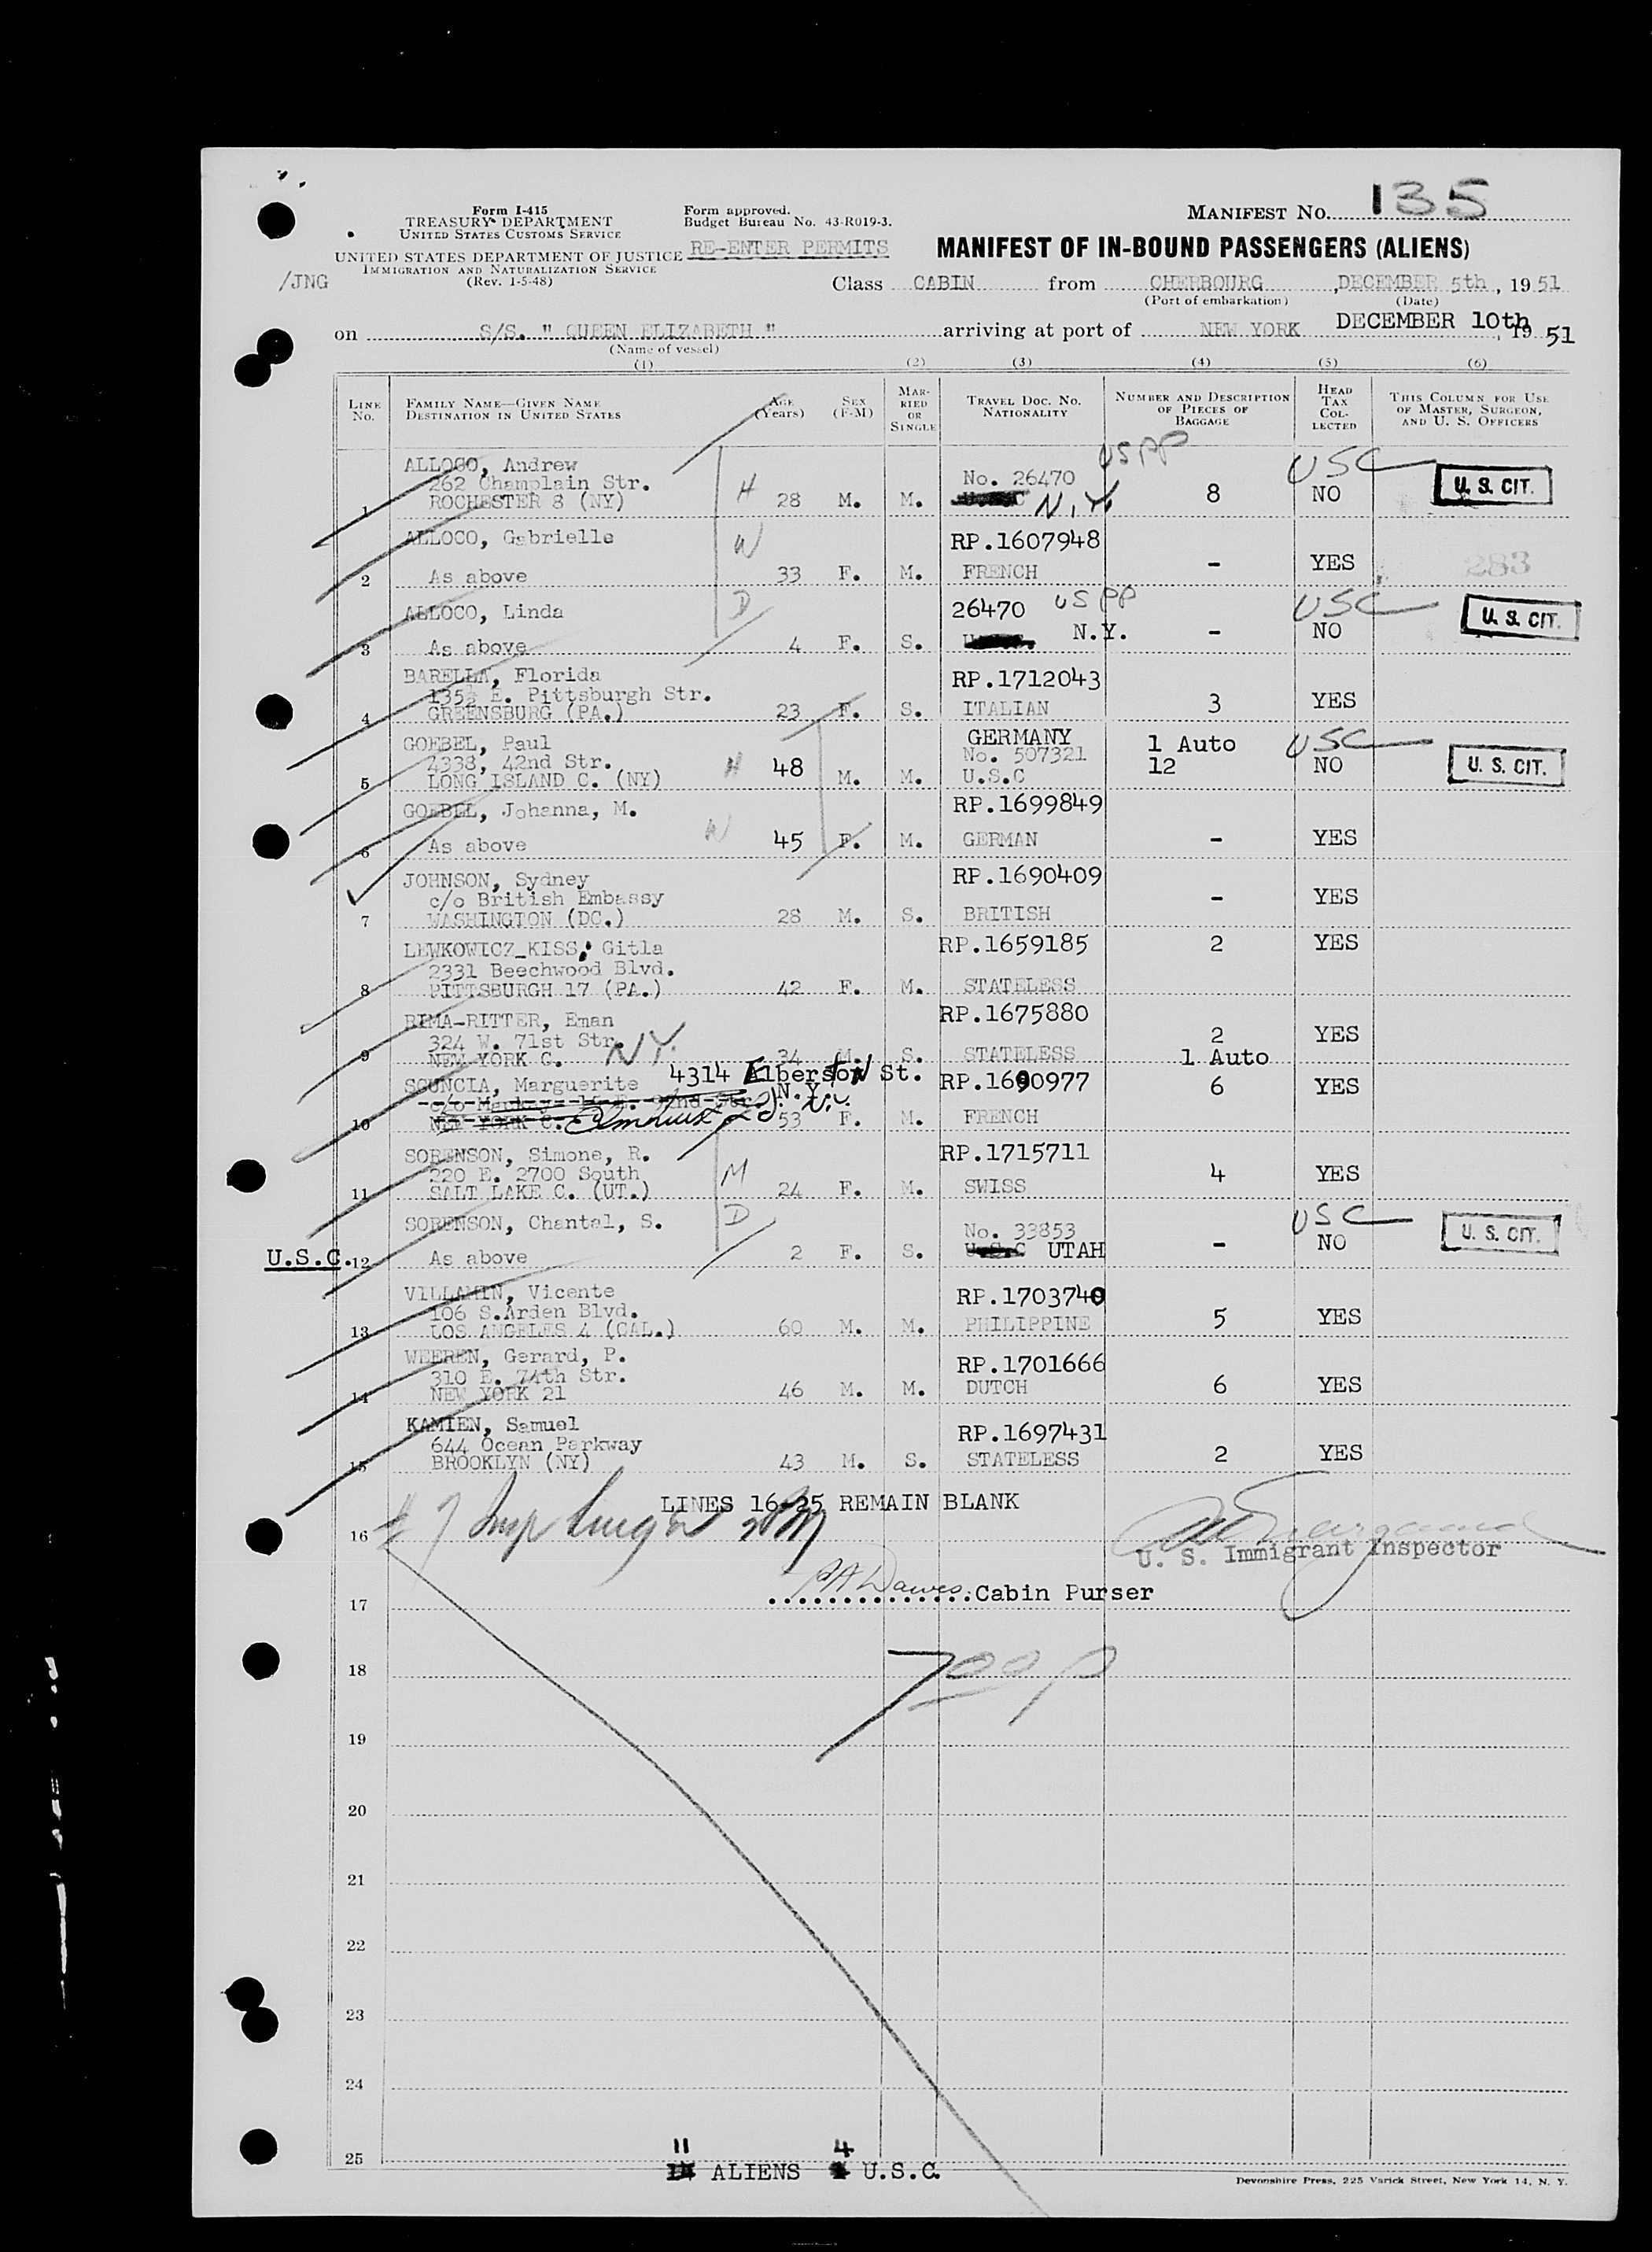 MANIFEST NO. 135
Form I-415
TREASURY DEPARTMENT
UNITED STATES CUSTOMS SERVICE
UNITED STATES DEPARTMENT OF JUSTICE
IMMIGRATION AND NATURALIZATION SERVICE
(Rev. 1-5-48)
/JNG
Form approved.
Budget Bureau No. 43-R019-3.
RE-ENTER PERMITS
MANIFEST OF IN-BOUND PASSENGERS (ALIENS)
Class CABIN from CHERBOURG, DECEMBER 5th, 19 51
(Port of embarkation) (Date)
on S/S. " QUEEN ELIZABETH " arriving at port of NEW YORK DECEMBER 10th, 19 51
(Name of vessel)
(1) (2) (3) (4) (5) (6)
LINE NO. FAMILY NAME—GIVEN NAME DESTINATION IN UNITED STATES AGE (Years) SEX (F-M) MARRIED OR SINGLE TRAVEL DOC. NO. NATIONALITY NUMBER AND DESCRIPTION OF PIECES OF BAGGAGE HEAD TAX COLLECTED THIS COLUMN FOR USE OF MASTER, SURGEON, AND U. S. OFFICERS
ALLOCO, Andrew US PP USC
262 Champlain Str. No. 26470 U. S. CIT.
1 ROCHESTER 8 (NY) H 28 M. M. N.Y. 8 NO
ALLOCO, Gabrielle W RP.1607948
2 As above 33 F. M. FRENCH - YES 283
ALLOCO, Linda D 26470 US PP USC U. S. CIT.
3 As above 4 F. S. N.Y. - NO
BARELLA, Florida RP.1712043
135½ E. Pittsburgh Str.
4 GREENSBURG (PA.) 23 F. S. ITALIAN 3 YES
GOEBEL, Paul GERMANY 1 Auto USC
4338, 42nd Str. No. 507321 12 NO U. S. CIT.
5 LONG ISLAND C. (NY) H 48 M. M. U.S.C
GOEBEL, Johanna, M. RP.1699849
6 As above W 45 F. M. GERMAN - YES
JOHNSON, Sydney RP.1690409
c/o British Embassy - YES
7 WASHINGTON (DC.) 28 M. S. BRITISH
LEWKOWICZ_KISS, Gitla RP.1659185 2 YES
2331 Beechwood Blvd.
8 PITTSBURGH 17 (PA.) 42 F. M. STATELESS
RIMA-RITTER, Eman RP.1675880
324 W. 71st Str. 2 YES
9 NEW YORK C. NY. 34 M. S. STATELESS 1 Auto
SGUNCIA, Marguerite 4314 Elberton St. RP.1690977 6 YES
N.Y.
10 NEW YORK C. 53 F. M. FRENCH
SORENSON, Simone, R. RP.1715711
220 E. 2700 South M 4 YES
11 SALT LAKE C. (UT.) 24 F. M. SWISS
SORENSON, Chantal, S. D No. 33853 USC U. S. CIT.
U.S.C. 12 As above 2 F. S. UTAH - NO
VILLAMIN, Vicente RP.1703740
106 S.Arden Blvd. 5 YES
13 LOS ANGELES 4 (CAL.) 60 M. M. PHILIPPINE
WEEREN, Gerard, P. RP.1701666
310 E. 74th Str.
14 NEW YORK 21 46 M. M. DUTCH 6 YES
KAMIEN, Samuel RP.1697431
644 Ocean Parkway
15 BROOKLYN (NY) 43 M. S. STATELESS 2 YES
LINES 16-25 REMAIN BLANK
16
U. S. Immigrant Inspector
17 Dawes Cabin Purser
18 700 P
19
20
21
22
23
24
25
11 ALIENS 4 U.S.C.
Devonshire Press, 225 Varick Street, New York 14, N. Y.